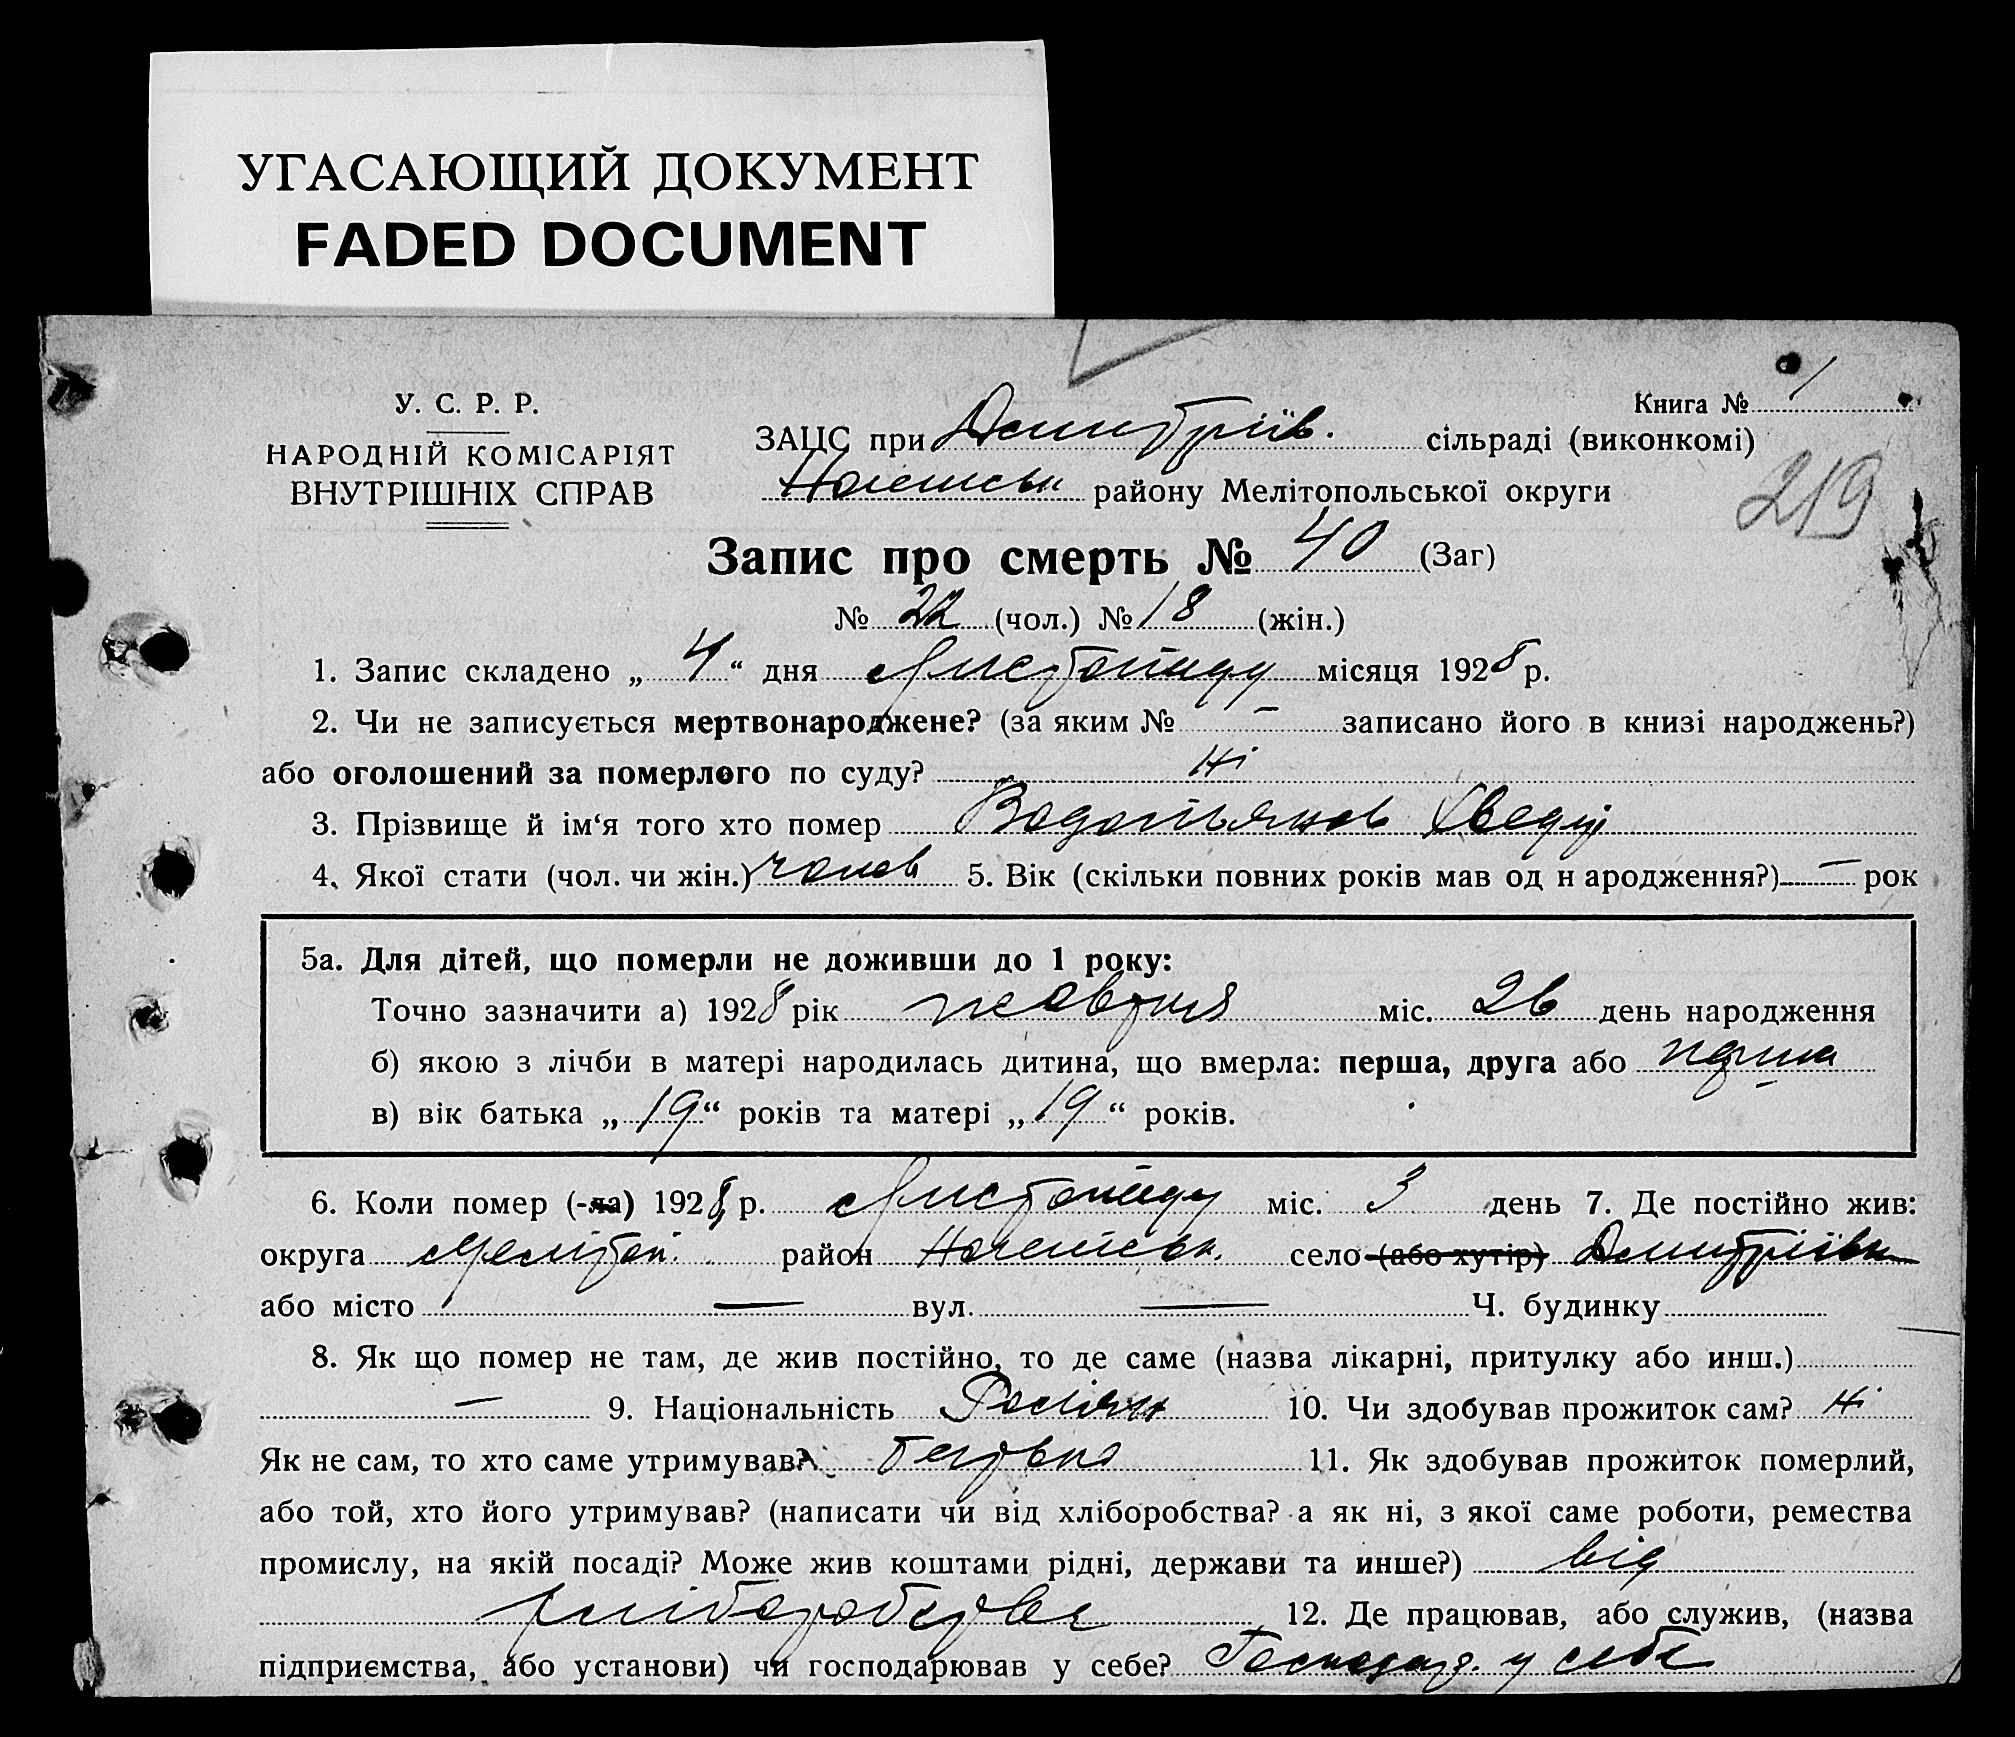 УГАСАЮЩИЙ ДОКУМЕНТ
FADED DOCUMENT
У. С. Р. Р.
НАРОДНІЙ КОМІСАРІЯТ
ВНУТРІШНІХ СПРАВ
Книга № 1
ЗАЦС при Дмитріїв. сільраді (виконкомі)
району Мелітопольської округи
219
Запис про смерть № 40 (Заг)
№ 22 (чол.) № 18 (жін.)
1. Запис складено „ 4 “ дня Листопаду місяця 1928 р.
2. Чи не записується мертвонароджене? (за яким № – записано його в книзі народжень?)
або оголошений за померлого по суду? Ні
3. Прізвище й ім‘я того хто помер
4. Якої стати (чол. чи жін.) чолов 5. Вік (скільки повних років мав од н ародження?) – рок
5а. Для дітей, що померли не доживши до 1 року:
Точно зазначити а) 1928 рік жовтня міс. 26 день народження
б) якою з лічби в матері народилась дитина, що вмерла: перша, друга або перша
в) вік батька „ 19 “ років та матері „ 19 “ років.
6. Коли помер (-ла) 1928 р. Листопаду міс. 3 день 7. Де постійно жив:
округа Мелітоп. район село (або хутір) Дмитріївк
або місто — вул. — Ч. будинку
8. Як що помер не там, де жив постійно, то де саме (назва лікарні, притулку або инш.)
– 9. Національність Росіян 10. Чи здобував прожиток сам? Ні
Як не сам, то хто саме утримував? батько 11. Як здобував прожиток померлий,
або той, хто його утримував? (написати чи від хліборобства? а як ні, з якої саме роботи, ремества
промислу, на якій посаді? Може жив коштами рідні, держави та инше?) від
хліборобства 12. Де працював, або служив, (назва
підприємства, або установи) чи господарював у себе? Господар. у себе